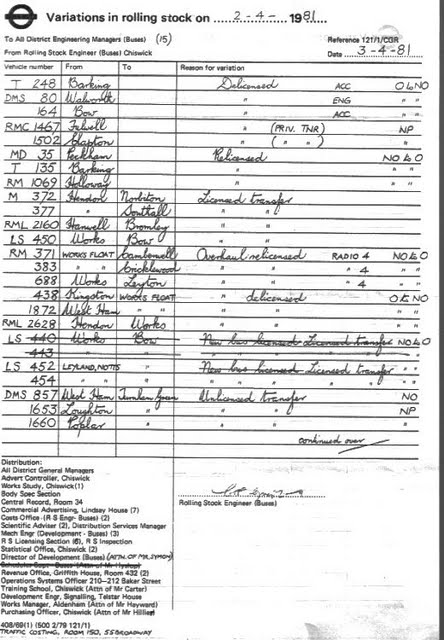 Variations in rolling stock on 2-4- 1981
To All District Engineering Managers (Buses) (15) Reference 121/1/CGR
From Rolling Stock Engineer (Buses) Chiswick Date 3-4-81
Vehicle number From To Reason for variation
T 248 Barking Delicensed ACC O to NO
DMS 80 Walworth " ENG " "
164 Bow " ACC " "
RMC 1467 Fulwell " (PRIV. TNR) NP
1502 Clapton " ( " " ) "
MD 35 Peckham Relicensed NO to O
T 135 Barking " " "
RM 1069 Holloway "
M 372 Hendon Norbiton Licensed transfer
377 " Southall " "
RML 2160 Hanwell Bromley " "
LS 450 Works Bow " "
RM 371 WORKS FLOAT Camberwell Overhaul relicensed RADIO 4 NO to O
383 " Cricklewood " " " 4 " "
688 Works Leyton " " " 4 " "
438 Kingston WORKS FLOAT " delicensed O to NO
1872 West Ham " " " " "
RML 2628 Hendon Works " " " "
LS 440 Works Bow New bus licensed Licensed transfer NO to O
443 " " " " " " "
LS 452 LEYLAND, NOTTS " New bus licensed Licensed transfer " "
454 " " " " " " " " "
DMS 857 West Ham Turnham Green Unlicensed transfer NO
1653 Loughton " " " NP
1660 Poplar " " " "
continued over
Distribution:
All District General Managers
Advert Controller, Chiswick
Works Study, Chiswick(1)
Body Spec Section
Central Record, Room 34
Commercial Advertising, Lindsay House (7)
Costs Office (R S Engr- Buses) (2)
Scientific Adviser (2), Distribution Services Manager
Mech Engr (Development - Buses) (3)
R S Licensing Section (6), R S Inspection
Statistical Office, Chiswick (2)
Director of Development (Buses) (ATTN. OF MR. SYMON)
Schedules Supt - Buses (Attn of Mr Hyslop)
Revenue Office, Griffith House, Room 432 (2)
Operations Systems Officer 210-212 Baker Street
Training School, Chiswick (Attn of Mr Carter)
Development Engr, Signalling, Telstar House
Works Manager, Aldenham (Attn of Mr Hayward)
Purchasing Officer, Chiswick (Attn of Mr Hillier)
Rolling Stock Engineer (Buses)
408/69(1) (500 2/79 121/1)
TRAFFIC COSTING, ROOM 150, 55 BROADWAY